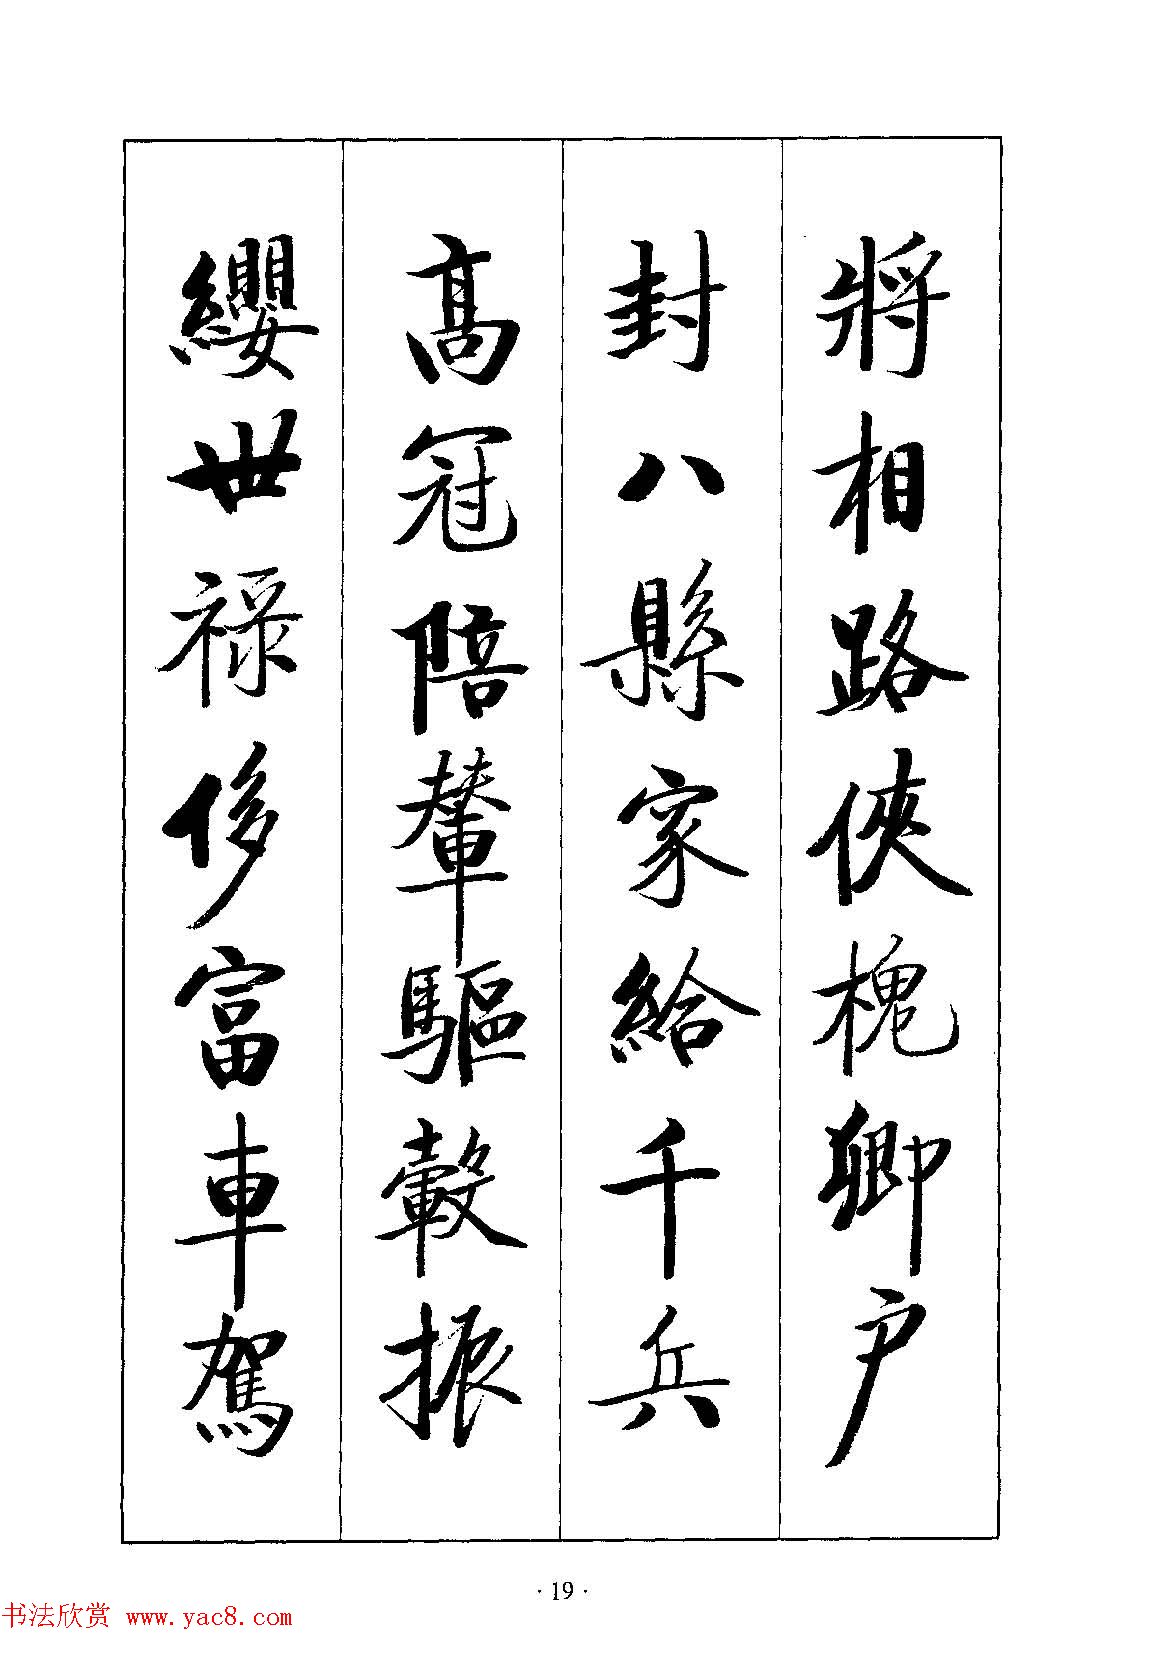 將相路俠槐卿户
封八縣家給千兵
高冠陪輦驅轂振
纓世禄侈富車駕
· 19 ·
书法欣赏 www.yac8.com